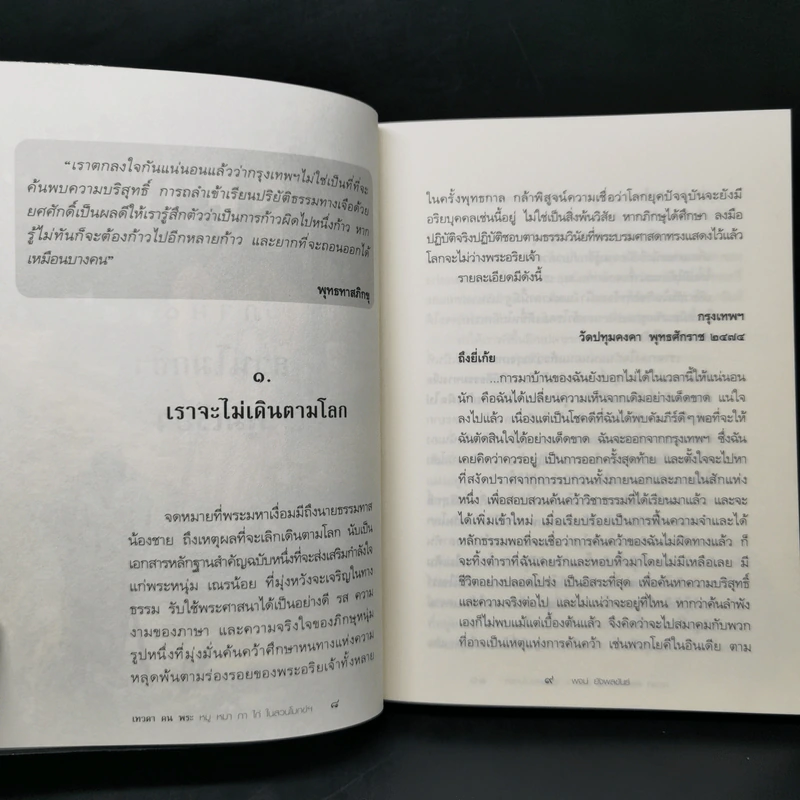 “เราตกลงใจกันแน่นอนแล้วว่ากรุงเทพฯไม่ใช่เป็นที่ที่จะ
ค้นพบความบริสุทธิ์ การถลำเข้าเรียนปริยัติธรรมทางเจือด้วย
ยศศักดิ์เป็นผลดีให้เรารู้สึกตัวว่าเป็นการก้าวผิดไปหนึ่งก้าว หาก
รู้ไม่ทันก็จะต้องก้าวไปอีกหลายก้าว และยากที่จะถอนออกได้
เหมือนบางคน”
พุทธทาสภิกขุ
๑.
เราจะไม่เดินตามโลก
จดหมายที่พระมหาเงื่อมมีถึงนายธรรมทาส
น้องชาย ถึงเหตุผลที่จะเลิกเดินตามโลก นับเป็น
เอกสารหลักฐานสำคัญฉบับหนึ่งที่จะส่งเสริมกำลังใจ
แก่พระหนุ่ม เณรน้อย ที่มุ่งหวังจะเจริญในทาง
ธรรม รับใช้พระศาสนาได้เป็นอย่างดี รส ความ
งามของภาษา และความจริงใจของภิกษุหนุ่ม
รูปหนึ่งที่มุ่งมั่นค้นคว้าศึกษาหนทางแห่งความ
หลุดพ้นตามร่องรอยของพระอริยเจ้าทั้งหลาย
เทวดา ผน พระ หมู หมา กา ไก่ ในสวนโมกข์ฯ ๘
ในครั้งพุทธกาล กล้าพิสูจน์ความเชื่อว่าโลกยุคปัจจุบันจะยังมี
อริยบุคคลเช่นนี้อยู่ ไม่ใช่เป็นสิ่งพ้นวิสัย หากภิกษุได้ศึกษา ลงมือ
ปฏิบัติจริงปฏิบัติชอบตามธรรมวินัยที่พระบรมศาสดาทรงแสดงไว้แล้ว
โลกจะไม่ว่างพระอริยเจ้า
รายละเอียดมีดังนี้
กรุงเทพฯ
วัดปทุมคงคา พุทธศักราช ๒๔๗๔
ถึงยี่เก้ย
...การมาบ้านของฉันยังบอกไม่ได้ในเวลานี้ให้แน่นอน
นัก คือฉันได้เปลี่ยนความเห็นจากเดิมอย่างเด็ดขาด แน่ใจ
ลงไปแล้ว เนื่องแต่เป็นโชคดีที่ฉันได้พบคัมภีร์ดีๆ พอที่จะให้
ฉันตัดสินใจได้อย่างเด็ดขาด ฉันจะออกจากกรุงเทพฯ ซึ่งฉัน
เคยคิดว่าควรอยู่ เป็นการออกครั้งสุดท้าย และตั้งใจจะไปหา
ที่สงัดปราศจากการรบกวนทั้งภายนอกและภายในสักแห่ง
หนึ่ง เพื่อสอบสวนค้นคว้าวิชาธรรมที่ได้เรียนมาแล้ว และจะ
ได้เพิ่มเข้าใหม่ เมื่อเรียบร้อยเป็นการฟื้นความจำและได้
หลักธรรมพอที่จะเชื่อว่าการค้นคว้าของฉันไม่ผิดทางแล้ว ก็
จะทิ้งตำราที่ฉันเคยรักและหอบหิ้วมาโดยไม่มีเหลือเลย มี
ชีวิตอย่างปลอดโปร่ง เป็นอิสระที่สุด เพื่อค้นหาความบริสุทธิ์
และความจริงต่อไป และไม่แน่ว่าจะอยู่ที่ไหน หากว่าค้นลำพัง
เองก็ไม่พบแม้แต่เบื้องต้นแล้ว จึงคิดว่าจะไปสมาคมกับพวก
ที่อาจเป็นเหตุแห่งการค้นคว้า เช่นพวกโยคีในอินเดีย ตาม
๙ พจน์ ยังพลขันธ์